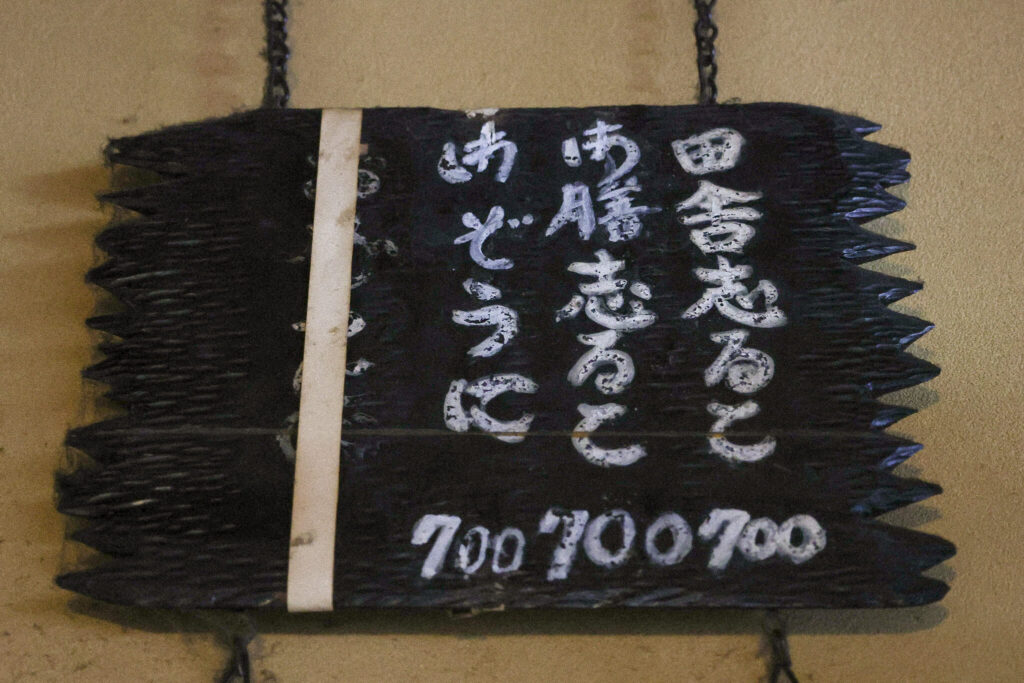 田舎志るこ
700
御膳志るこ
700
御ぞうに
700